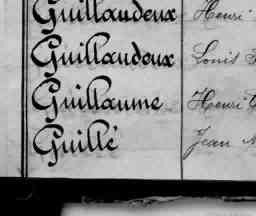 Guillaudeux Henri
Guillaudoux Louis
Guillaume Henri
Guillé Jean